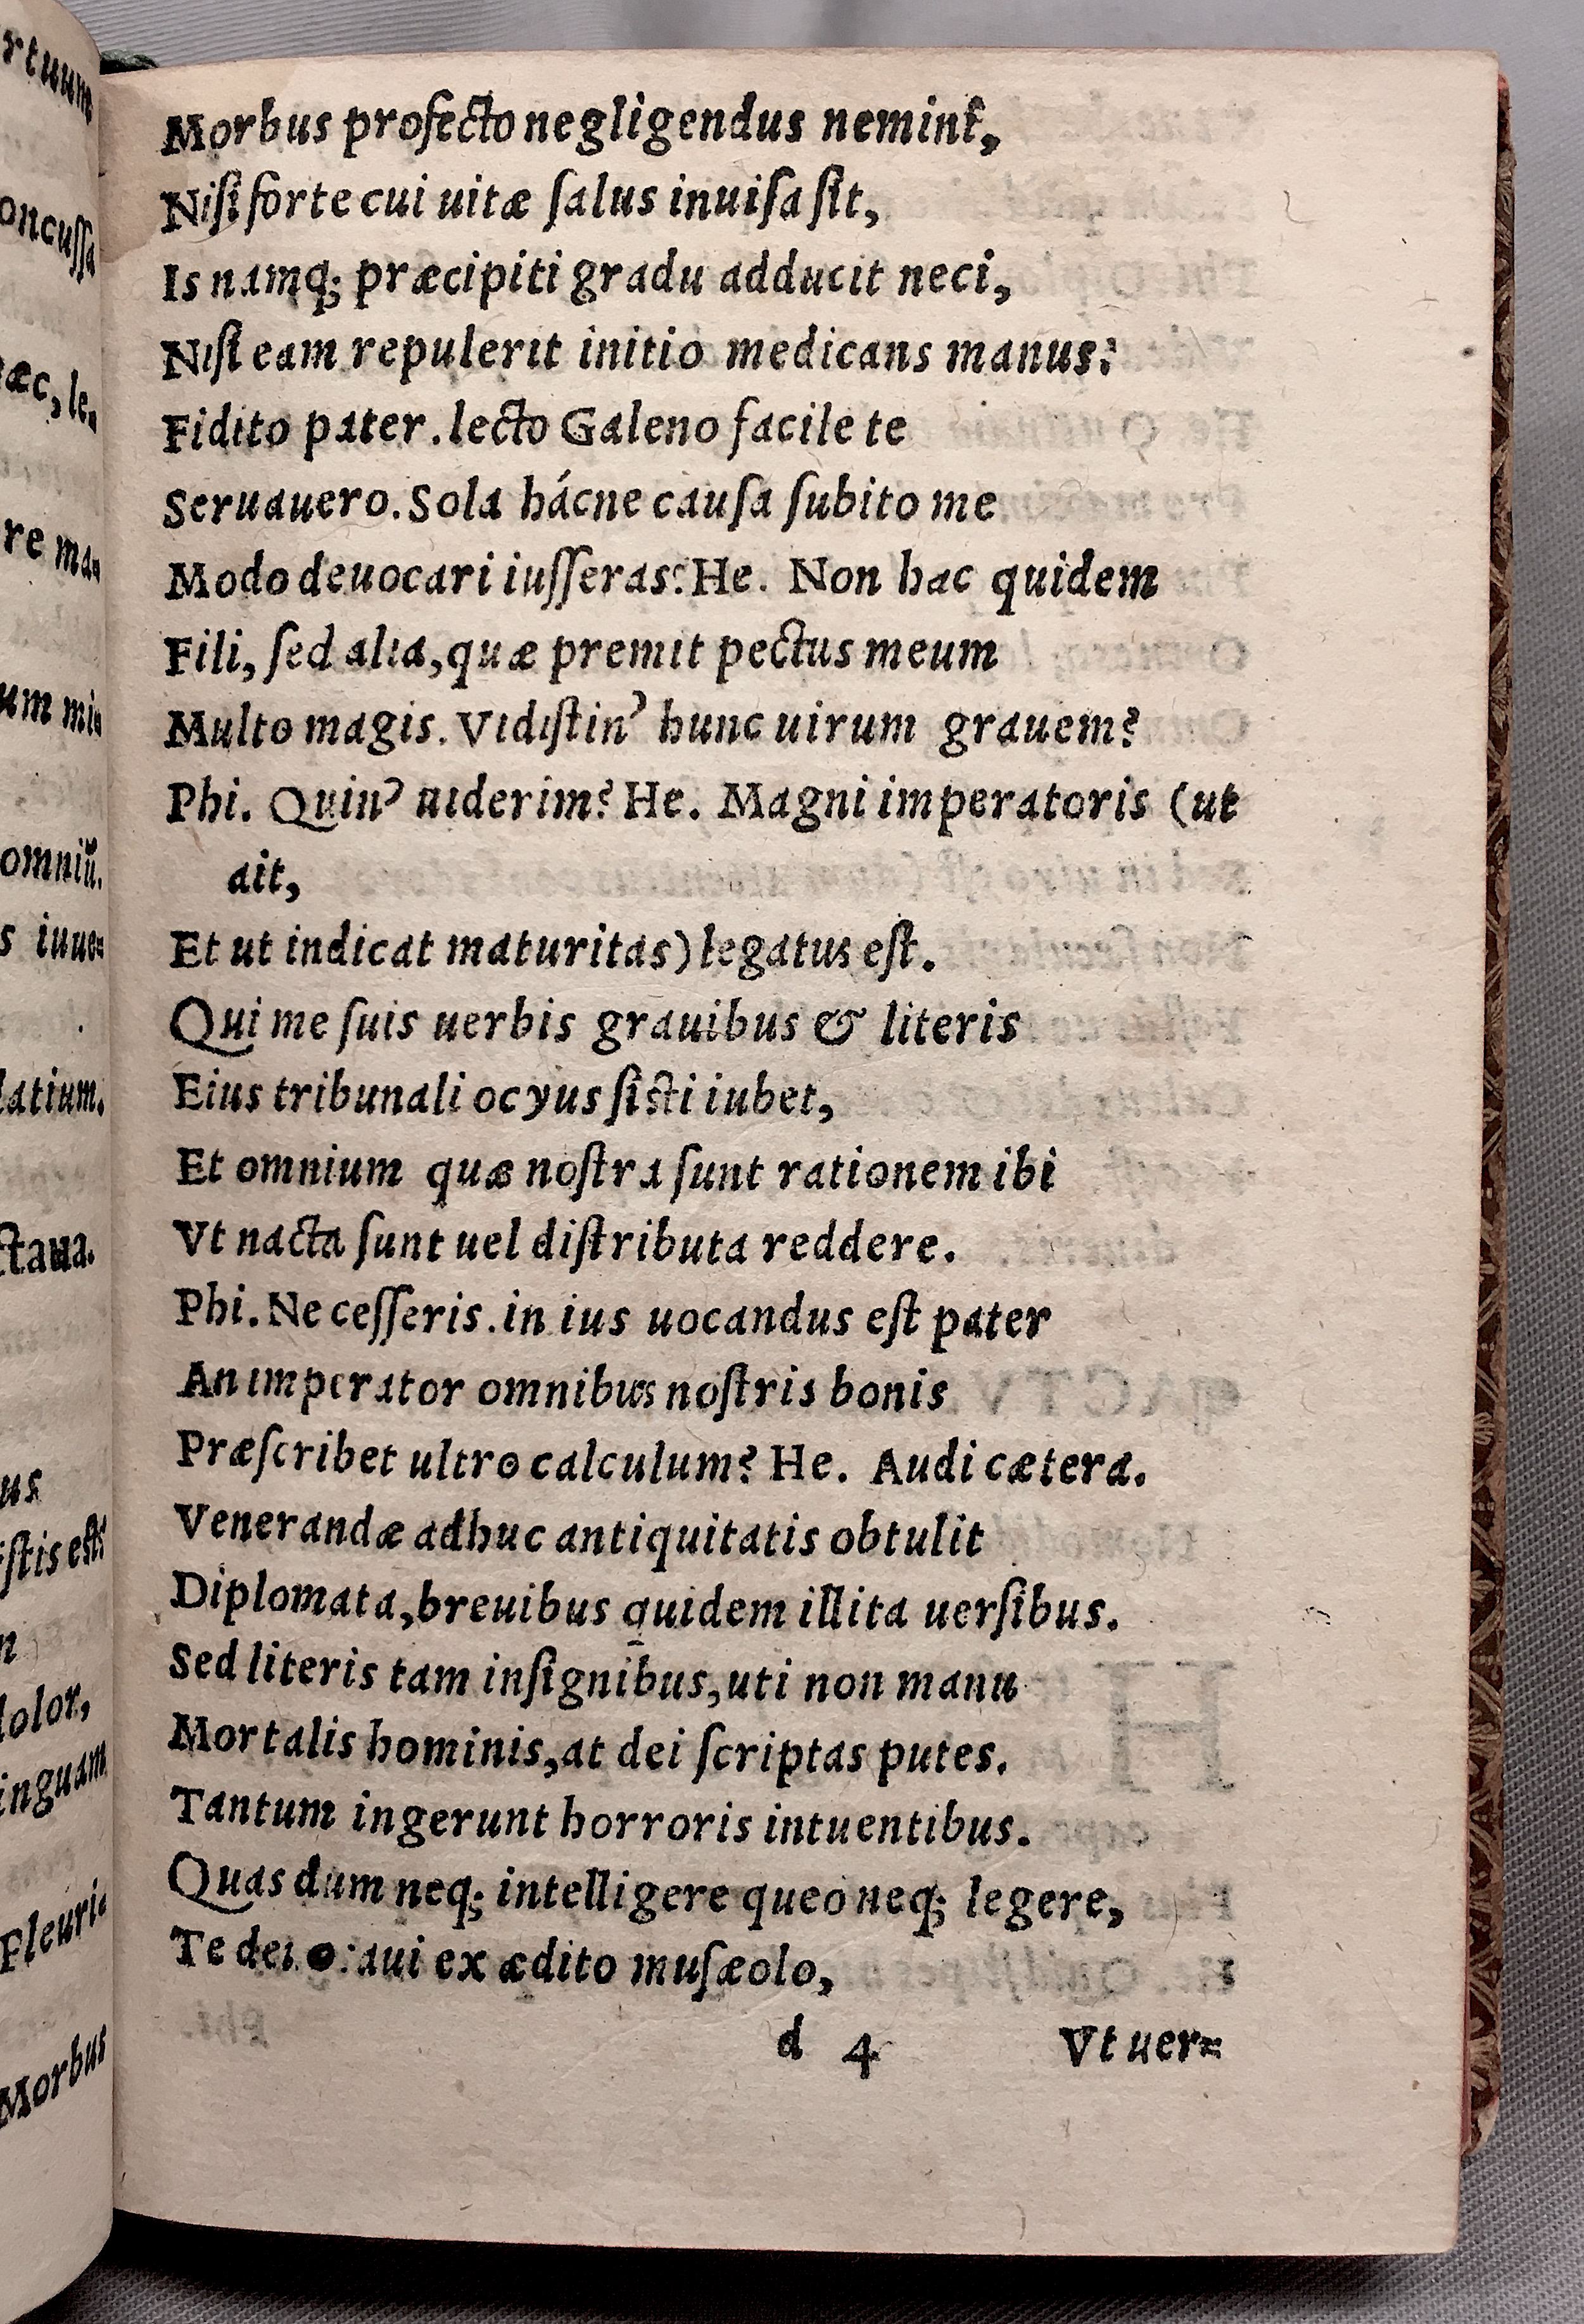 Morbus profecto negligendus nemini,
Niſi forte cui uitæ ſalus inuiſa ſit,
Is namq; præcipiti gradu adducit neci,
Niſi eam repulerit initio medicans manus:
Fidito pater. lecto Galeno facile te
Seruauero. Sola hácne cauſa ſubito me
Modo deuocari iuſſeras? He. Non hac quidem
Fili, ſed alia, quæ premit pectus meum
Multo magis. Vidiſtin' hunc uirum grauem?
Phi. Quin' uiderim? He. Magni imperatoris (ut
ait,
Et ut indicat maturitas) legatus eſt.
Qui me ſuis uerbis grauibus & literis
Eius tribunali ocyus ſiſti iubet,
Et omnium quæ noſtra ſunt rationem ibi
Vt nacta ſunt uel diſtributa reddere.
Phi. Ne ceſſeris. in ius uocandus eſt pater
An imperator omnibus noſtris bonis
Præſcribet ultro calculum? He. Audi cætera.
Venerandæ adhuc antiquitatis obtulit
Diplomata, breuibus quidem illita uerſibus.
Sed literis tam inſignibus, uti non manu
Mortalis hominis, at dei ſcriptas putes.
Tantum ingerunt horroris intuentibus.
Quas dum neq; intelligere queo neq; legere,
Te ex ædito muſæolo,
d 4 Vt uer=